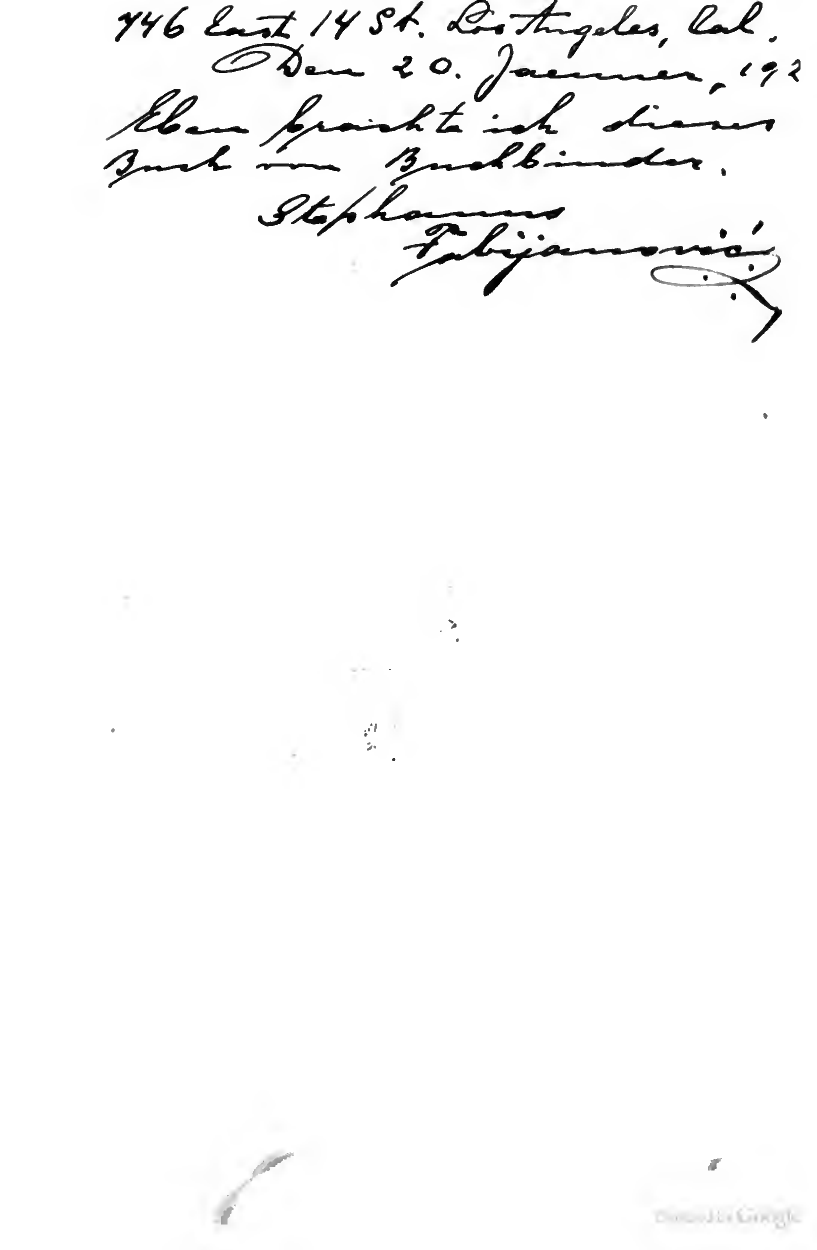 746 East 14 St. Los Angeles, Cal.
Den 20. Jaenner, 192
Eben brachte ich dieses
Buch vom Buchbinder.
Stephanus
Fabijanović
Digitized by Google